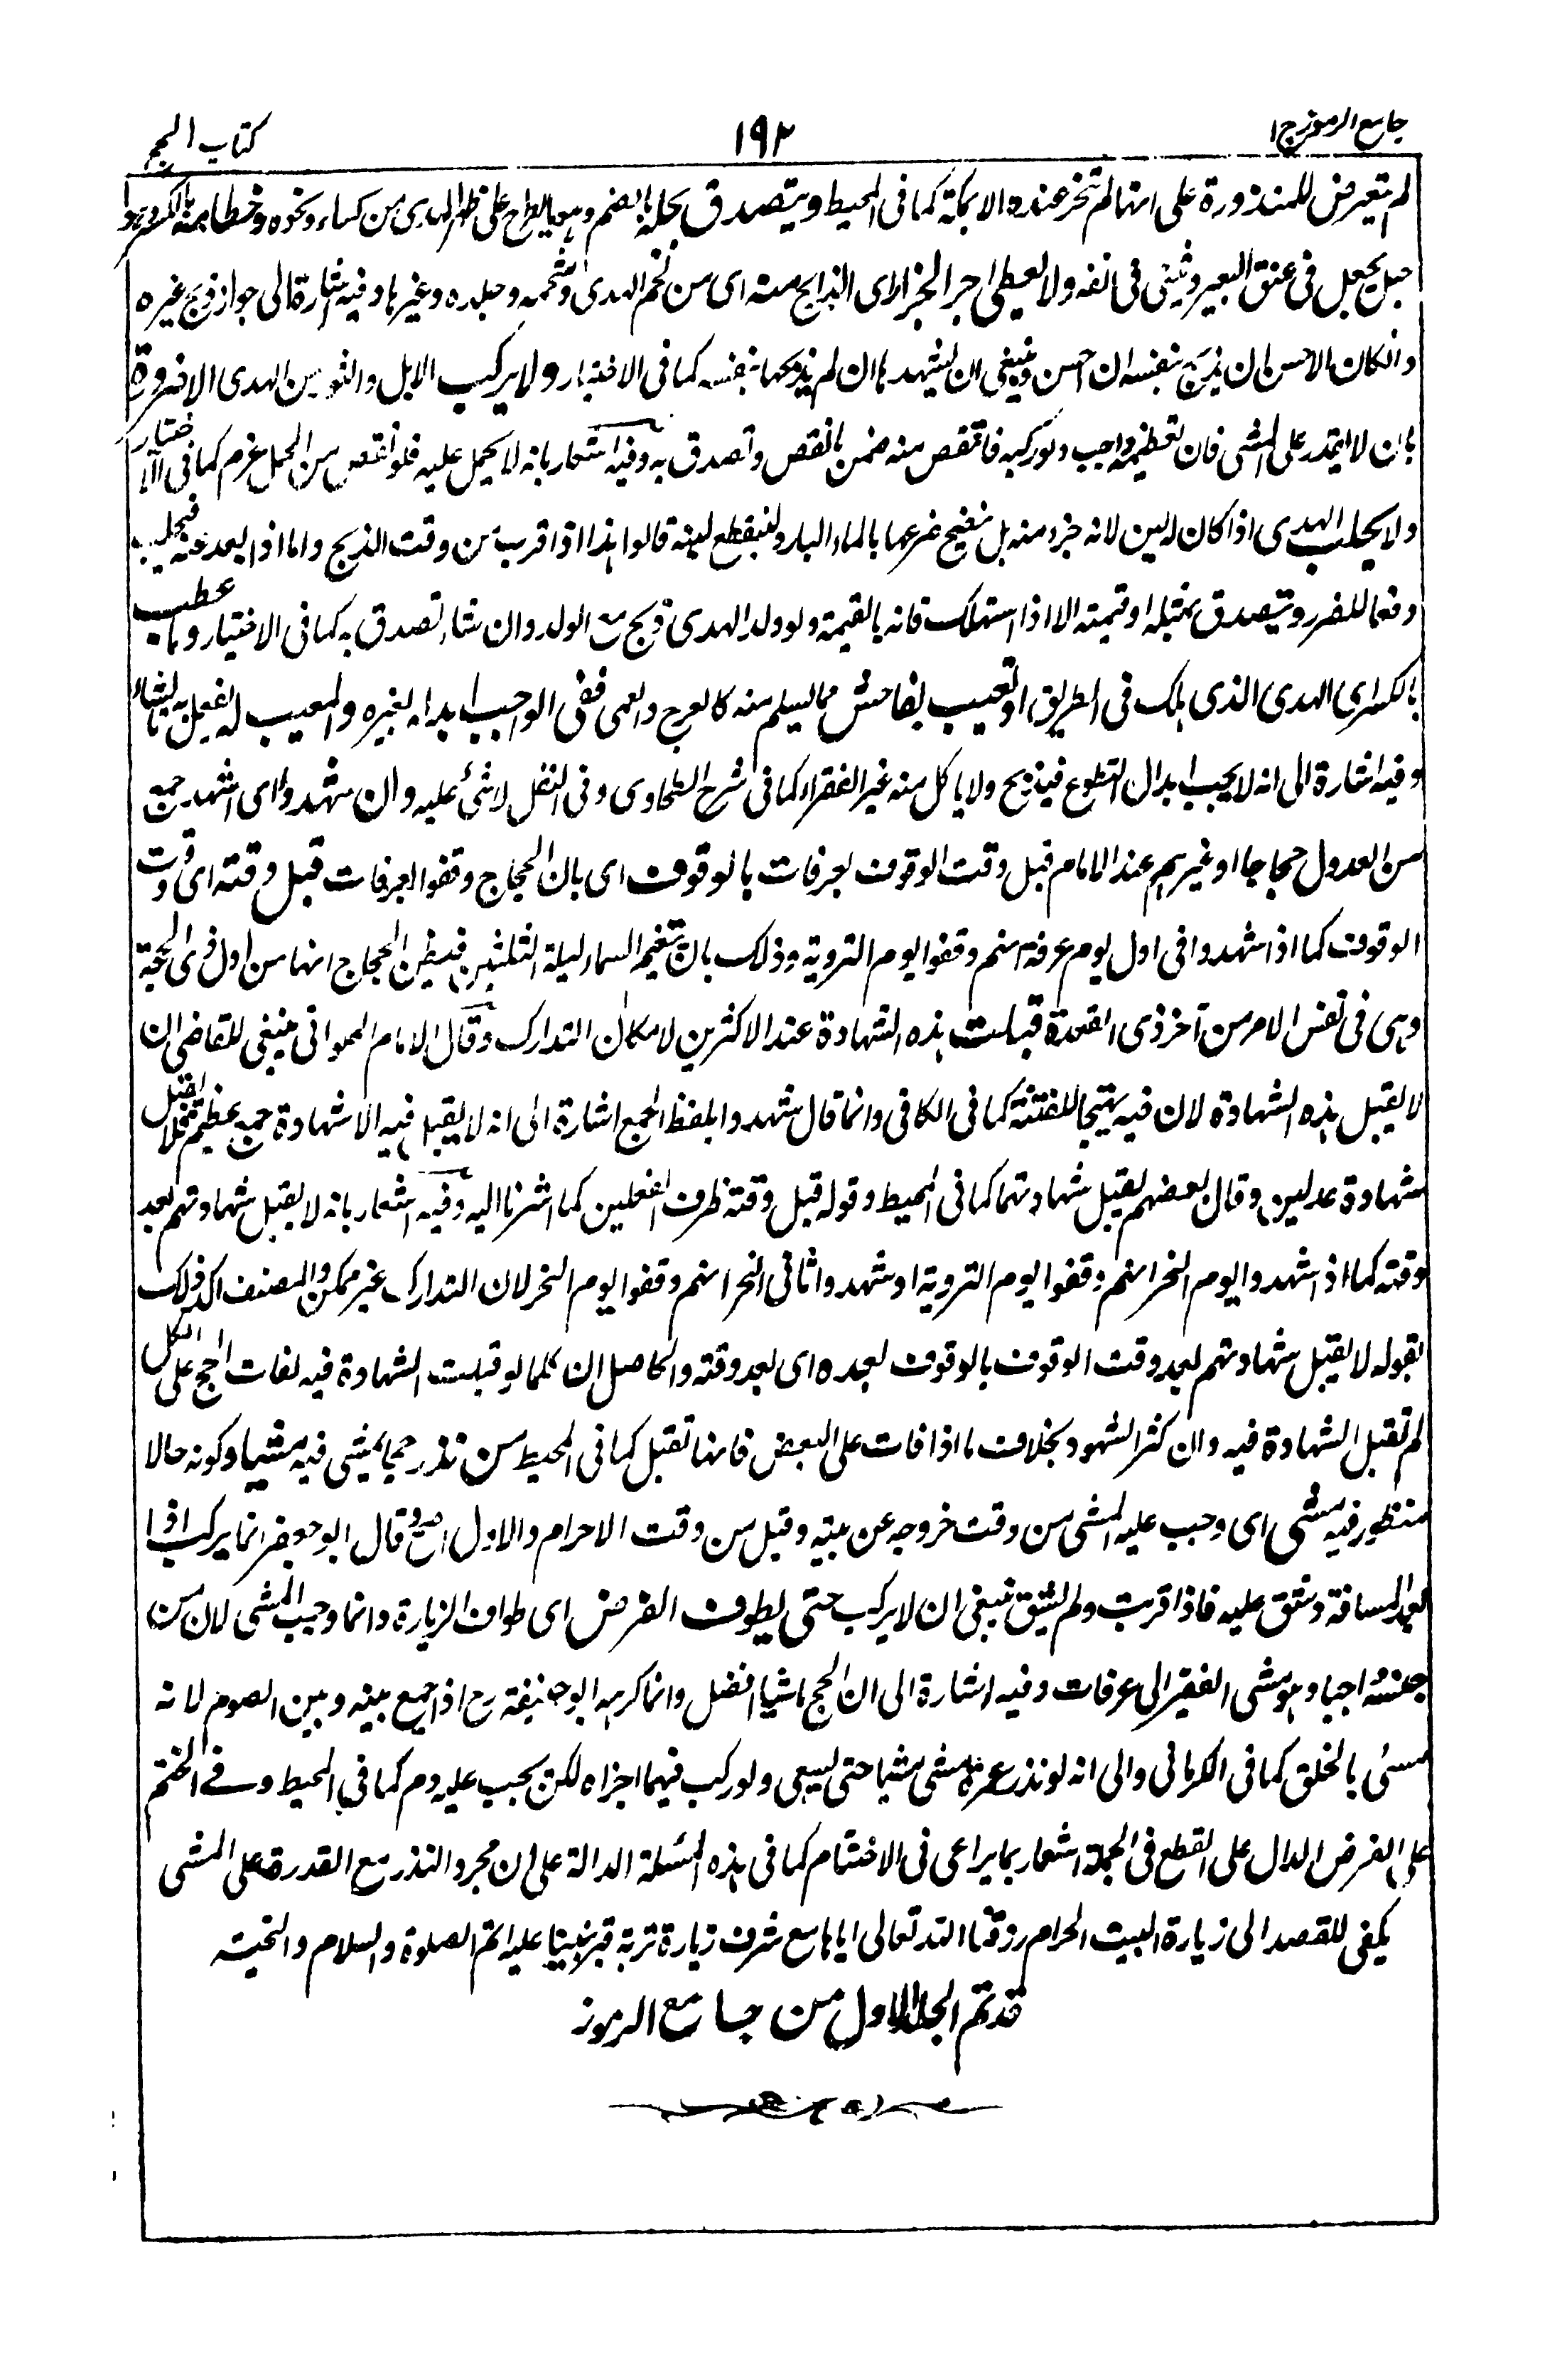 جامع الرموز ج ١
١٩٢
كتاب الحج
لم يتعرض للمنذورة على انها لم تنحر عنده الا بمكة كما فى المحيط ويتصدق بجله بالضم وهو ما يطرح على ظهر الهدى من كساء ونحوه وخطامه بالكسر وهو
حبل يجعل فى عنق البعير ويثنى فى انفه ولا يعطى اجر الجزار اى الذابح منه اى من لحم الهدى وشحمه وجلده وغيرها وفيه اشارة الى جواز ذبح غيره
وانكان الاحسن ان يذبح بنفسه ان احسن وينبغى ان يشهدها ان لم يذبحها بنفسه كما فى الاختيار ولا يركب الابل والثور من الهدى الا ضرورة
بان لا يقدر على المشى فان تعظيمه واجب ولو ركبه فانتقص منه ضمن ما نقص وتصدق به وفيه اشعار بانه لا يحمل عليه فلو نقص من الحمل غرم كما فى الاختيار
ولا يحلب الهدى اذا كان له لبن لانه جزء منه بل ينضح ضرعها بالماء البارد لينقطع لبنه قالوا هذا اذا قرب من وقت الذبح واما اذا بعد عنه فيحلب
دفعا للضرر ويتصدق بمثله او قيمته الا اذا استهلك فانه بالقيمة ولو ولد الهدى ذبح مع الولد وان شاء تصدق به كما فى الاختيار وما عطب
بالكسر اى الهدى الذى هلك فى الطريق او تعيب بفاحش مما يسلم منه كالعرج والعمى ففى الواجب ابداله لغيره والمعيب له يفعل به ما يشاء
وفيه اشارة الى انه لا يجب ابدال التطوع فيذبح ولا ياكل منه غير الفقراء كما فى شرح الطحاوى وفى النفل لا شئ عليه وان شهدوا اى اشهد جمع
من العدول حجاجا او غيرهم عند الامام قبل وقت الوقوف بعرفات بالوقوف اى بان الحجاج وقفوا بعرفات قبل وقته اى وقت
الوقوف كما اذا شهدوا فى اول يوم عرفة انهم وقفوا يوم التروية وذلك بان تغيم السماء ليلة الثلثين فيظن الحجاج انها من اول ذى الحجة
وهى فى نفس الامر من آخر ذى القعدة قبلت هذه الشهادة عند الاكثرين لامكان التدارك وقال الامام الحلوانى ينبغى للقاضى ان
لا يقبل هذه الشهادة لان فيه تهيجا للفتنة كما فى الكافى وانما قال شهدوا بلفظ الجمع اشارة الى انه لا يقبل فيه الا شهادة جمع عظيم فلا يقبل
شهادة عدلين وقال بعضهم يقبل شهادتهما كما فى المحيط وقوله قبل وقته ظرف الفعلين كما اشرنا اليه وفيه اشعار بانه لا يقبل شهادتهم بعد
وقته كما اذا شهدوا يوم النحر انهم وقفوا يوم التروية او شهدوا ثانى النحر انهم وقفوا يوم النحر لان التدارك غير ممكن والمصنف اكد ذلك
بقوله لا يقبل شهادتهم بعد وقت الوقوف بالوقوف بعده اى بعد وقته والحاصل ان كلما لو قبلت الشهادة فيه لفات الحج على الكل
لم تقبل الشهادة فيه وان كثر الشهود بخلاف ما اذا فات على البعض فانها تقبل كما فى المحيط من نذر حجا يمشى فيه مشيا وكونه حالا
منظور فيه مشى اى وجب عليه المشى من وقت خروجه عن بيته وقيل من وقت الاحرام والاول اصح وقال ابو جعفر انما يركب اذا
بعد المسافة وشق عليه فاذا قربت ولم يشق ينبغى ان لا يركب حتى يطوف الفرض اى طواف الزيارة وانما وجب المشى لان من
جنسه واجبا وهو مشى الفقير الى عرفات وفيه اشارة الى ان الحج ماشيا افضل وانما كرهه ابو حنيفة رح اذا جمع بينه وبين الصوم لانه
مسئ بالخلق كما فى الكرمانى والى انه لو نذر عمرة مشى مشيا حتى يسعى ولو ركب فيهما اجزاه لكن يجب عليه دم كما فى المحيط وفى الختم
على الفرض الدال على القطع فى الجملة اشعار بما يراعى فى الاختتام كما فى هذه المسئلة الدالة على ان مجرد النذر مع القدرة على المشى
يكفى للقصد الى زيارة البيت الحرام رزقنا الله تعالى اياها مع شرف زيارة تربة قبر نبينا عليه اتم الصلوة والسلام والتحية
قد تم الجلد الاول من جامع الرموز